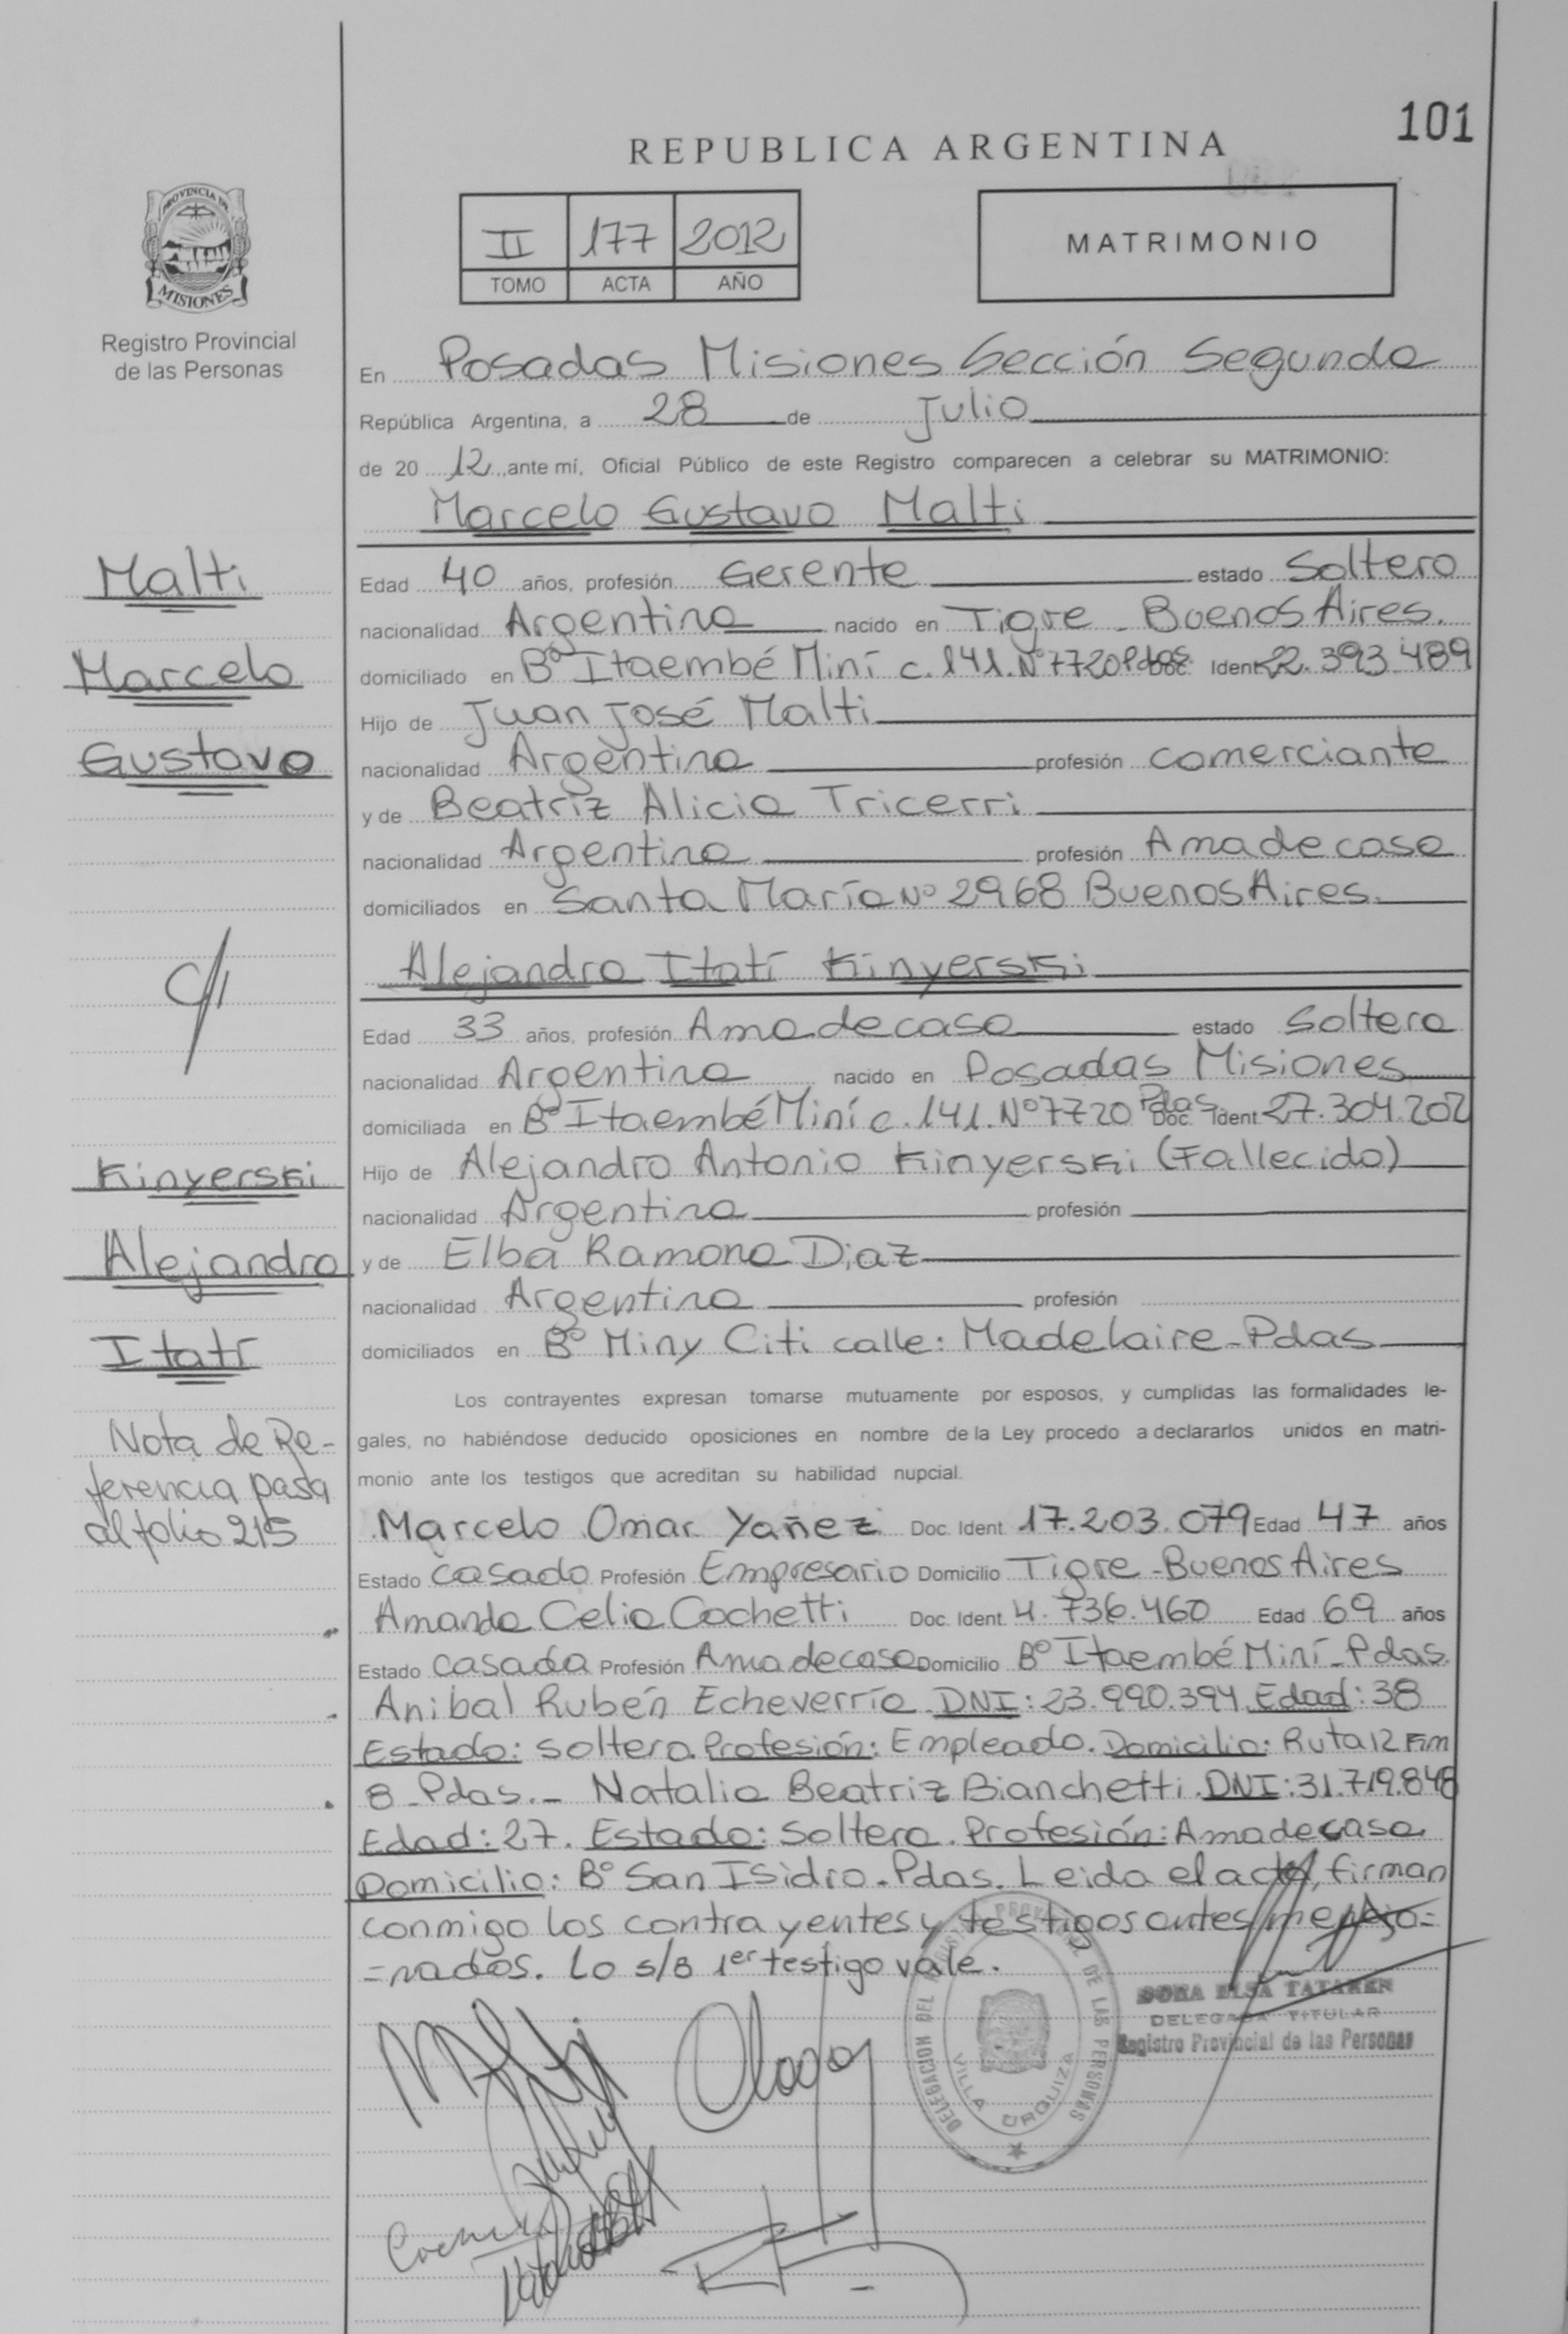 101
REPUBLICA ARGENTINA
PROVINCIA DE
MISIONES
Registro Provincial
de las Personas
II 177 2012
TOMO ACTA AÑO
MATRIMONIO
En Posadas Misiones Sección Segunda
República Argentina, a 28 de Julio
de 20 12 ante mí, Oficial Público de este Registro comparecen a celebrar su MATRIMONIO:
Marcelo Gustavo Malti
Malti
Marcelo
Gustavo
Edad 40 años, profesión Gerente estado Soltero
nacionalidad Argentina nacido en Tigre - Buenos Aires.
domiciliado en Bº Itaembé Miní c. 141. Nº 7720 Pdas. Doc. Ident 22.393.489
Hijo de Juan José Malti
nacionalidad Argentina profesión comerciante
y de Beatriz Alicia Tricerri
nacionalidad Argentina profesión Ama de casa
domiciliados en Santa María Nº 2968 Buenos Aires.
c/
Alejandra Itatí Kinyerski
Edad 33 años, profesión Ama de casa estado Soltera
nacionalidad Argentina nacido en Posadas Misiones
domiciliada en Bº Itaembé Miní c. 141. Nº 7720 Pdas Doc. Ident 27.304.202
Kinyerski
Alejandra
Itatí
Hijo de Alejandro Antonio Kinyerski (Fallecido)
nacionalidad Argentina profesión
y de Elba Ramona Diaz
nacionalidad Argentina profesión
domiciliados en Bº Miny Citi calle: Madelaire - Pdas
Los contrayentes expresan tomarse mutuamente por esposos, y cumplidas las formalidades le-
gales, no habiéndose deducido oposiciones en nombre de la Ley procedo a declararlos unidos en matri-
monio ante los testigos que acreditan su habilidad nupcial.
Nota de Re-
ferencia pasa
al folio 215
Marcelo Omar Yañez Doc. Ident 17.203.079 Edad 47 años
Estado casado Profesión Empresario Domicilio Tigre - Buenos Aires
Amanda Celia Cochetti Doc. Ident. 4.736.460 Edad 69 años
Estado casada Profesión Ama de casa Domicilio Bº Itaembé Miní - Pdas.
Anibal Rubén Echeverría DNI: 23.990.394 Edad: 38
Estado: soltero. Profesión: Empleado. Domicilio: Ruta 12 Km
8 - Pdas. - Natalia Beatriz Bianchetti. DNI: 31.719.848
Edad: 27. Estado: Soltera. Profesión: Ama de casa
Domicilio: Bº San Isidro - Pdas. Leida el acta, firman
conmigo los contrayentes y testigos antes mencio=
=nados. Lo s/b 1er testigo vale.
DELEGACION DEL REGISTRO PROVINCIAL DE LAS PERSONAS
VILLA URQUIZA
ELSA TATAREN
DELEGADA TITULAR
Registro Provincial de las Personas
Malti